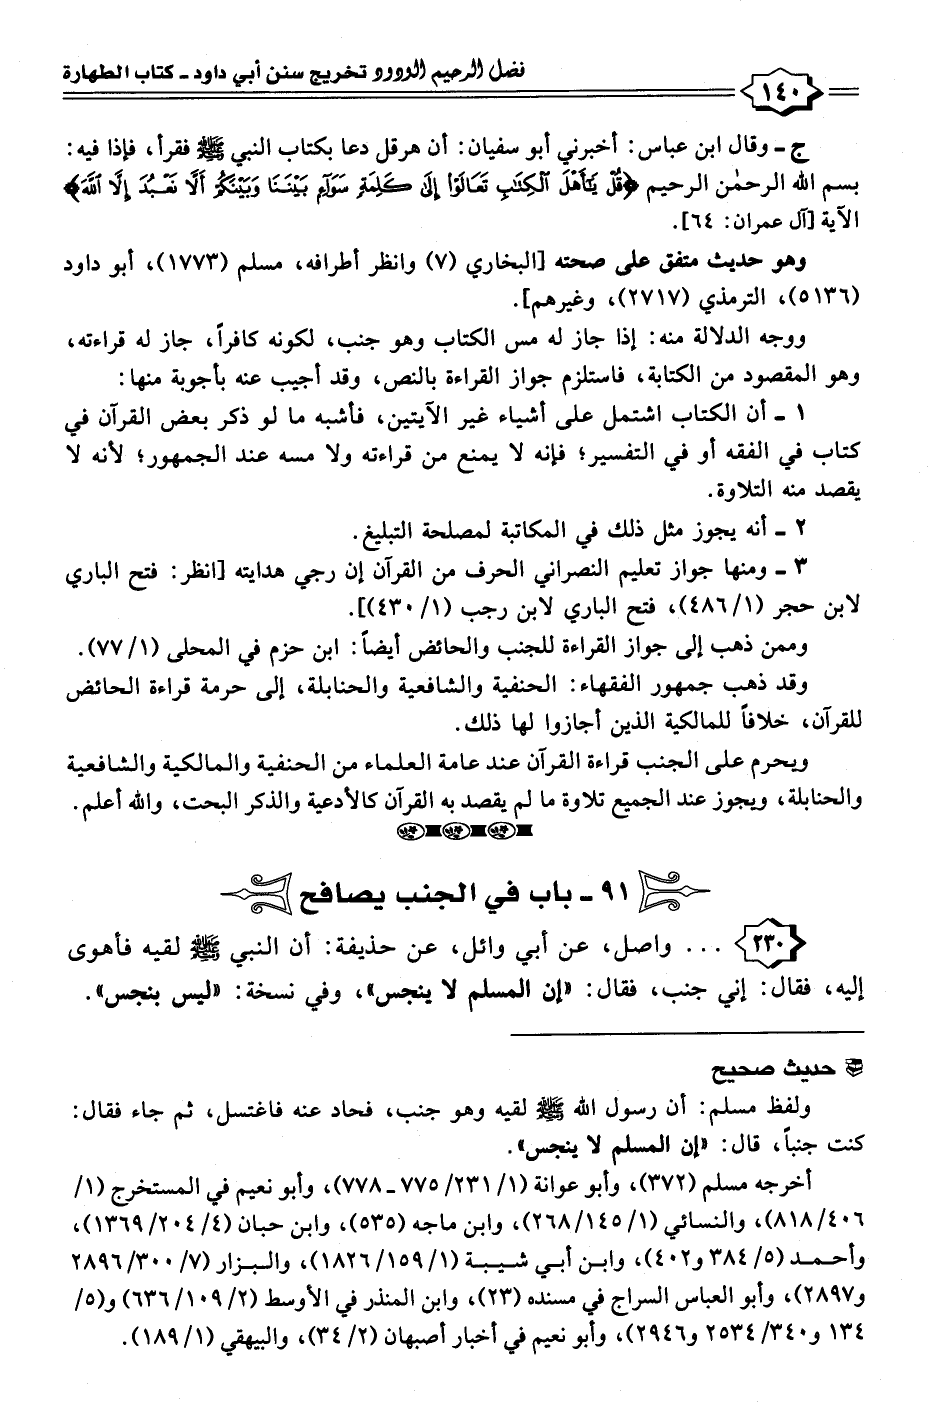 فضل الرحيم الودود تخريج سنن أبي داود ـ كتاب الطهارة
١٤٠
ج ـ وقال ابن عباس: أخبرني أبو سفيان: أن هرقل دعا بكتاب النبي ﷺ فقرأ، فإذا فيه:
بسم الله الرحمٰن الرحيم ﴿قُلْ يَٰٓأَهْلَ ٱلْكِتَٰبِ تَعَالَوْا۟ إِلَىٰ كَلِمَةٍ سَوَآءٍۭ بَيْنَنَا وَبَيْنَكُمْ أَلَّا نَعْبُدَ إِلَّا ٱللَّهَ﴾
الآية [آل عمران: ٦٤].
وهو حديث متفق على صحته [البخاري (٧) وانظر أطرافه، مسلم (١٧٧٣)، أبو داود
(٥١٣٦)، الترمذي (٢٧١٧)، وغيرهم].
ووجه الدلالة منه: إذا جاز له مس الكتاب وهو جنب، لكونه كافراً، جاز له قراءته،
وهو المقصود من الكتابة، فاستلزم جواز القراءة بالنص، وقد أجيب عنه بأجوبة منها:
١ ـ أن الكتاب اشتمل على أشياء غير الآيتين، فأشبه ما لو ذكر بعض القرآن في
كتاب في الفقه أو في التفسير؛ فإنه لا يمنع من قراءته ولا مسه عند الجمهور؛ لأنه لا
يقصد منه التلاوة.
٢ ـ أنه يجوز مثل ذلك في المكاتبة لمصلحة التبليغ.
٣ ـ ومنها جواز تعليم النصراني الحرف من القرآن إن رجي هدايته [انظر: فتح الباري
لابن حجر (١/ ٤٨٦)، فتح الباري لابن رجب (١/ ٤٣٠)].
وممن ذهب إلى جواز القراءة للجنب والحائض أيضاً: ابن حزم في المحلى (١/ ٧٧).
وقد ذهب جمهور الفقهاء: الحنفية والشافعية والحنابلة، إلى حرمة قراءة الحائض
للقرآن، خلافاً للمالكية الذين أجازوا لها ذلك.
ويحرم على الجنب قراءة القرآن عند عامة العلماء من الحنفية والمالكية والشافعية
والحنابلة، ويجوز عند الجميع تلاوة ما لم يقصد به القرآن كالأدعية والذكر البحت، والله أعلم.
٩١ ـ باب في الجنب يصافح
٢٣٠ ... واصل، عن أبي وائل، عن حذيفة: أن النبي ﷺ لقيه فأهوى
إليه، فقال: إني جنب، فقال: «إن المسلم لا ينجس»، وفي نسخة: «ليس بنجس».
حديث صحيح
ولفظ مسلم: أن رسول الله ﷺ لقيه وهو جنب، فحاد عنه فاغتسل، ثم جاء فقال:
كنت جنباً، قال: «إن المسلم لا ينجس».
أخرجه مسلم (٣٧٢)، وأبو عوانة (١/ ٢٣١/ ٧٧٥ ـ ٧٧٨)، وأبو نعيم في المستخرج (١/
٤٠٦/ ٨١٨)، والنسائي (١/ ١٤٥/ ٢٦٨)، وابن ماجه (٥٣٥)، وابن حبان (٤/ ٢٠٤/ ١٣٦٩)،
وأحمد (٥/ ٣٨٤ و٤٠٢)، وابن أبي شيبة (١/ ١٥٩/ ١٨٢٦)، والبزار (٧/ ٣٠٠/ ٢٨٩٦
و٢٨٩٧)، وأبو العباس السراج في مسنده (٢٣)، وابن المنذر في الأوسط (٢/ ١٠٩/ ٦٣٦) و(٥/
١٣٤ و٣٤٠/ ٢٥٣٤ و٢٩٤٦)، وأبو نعيم في أخبار أصبهان (٢/ ٣٤)، والبيهقي (١/ ١٨٩).